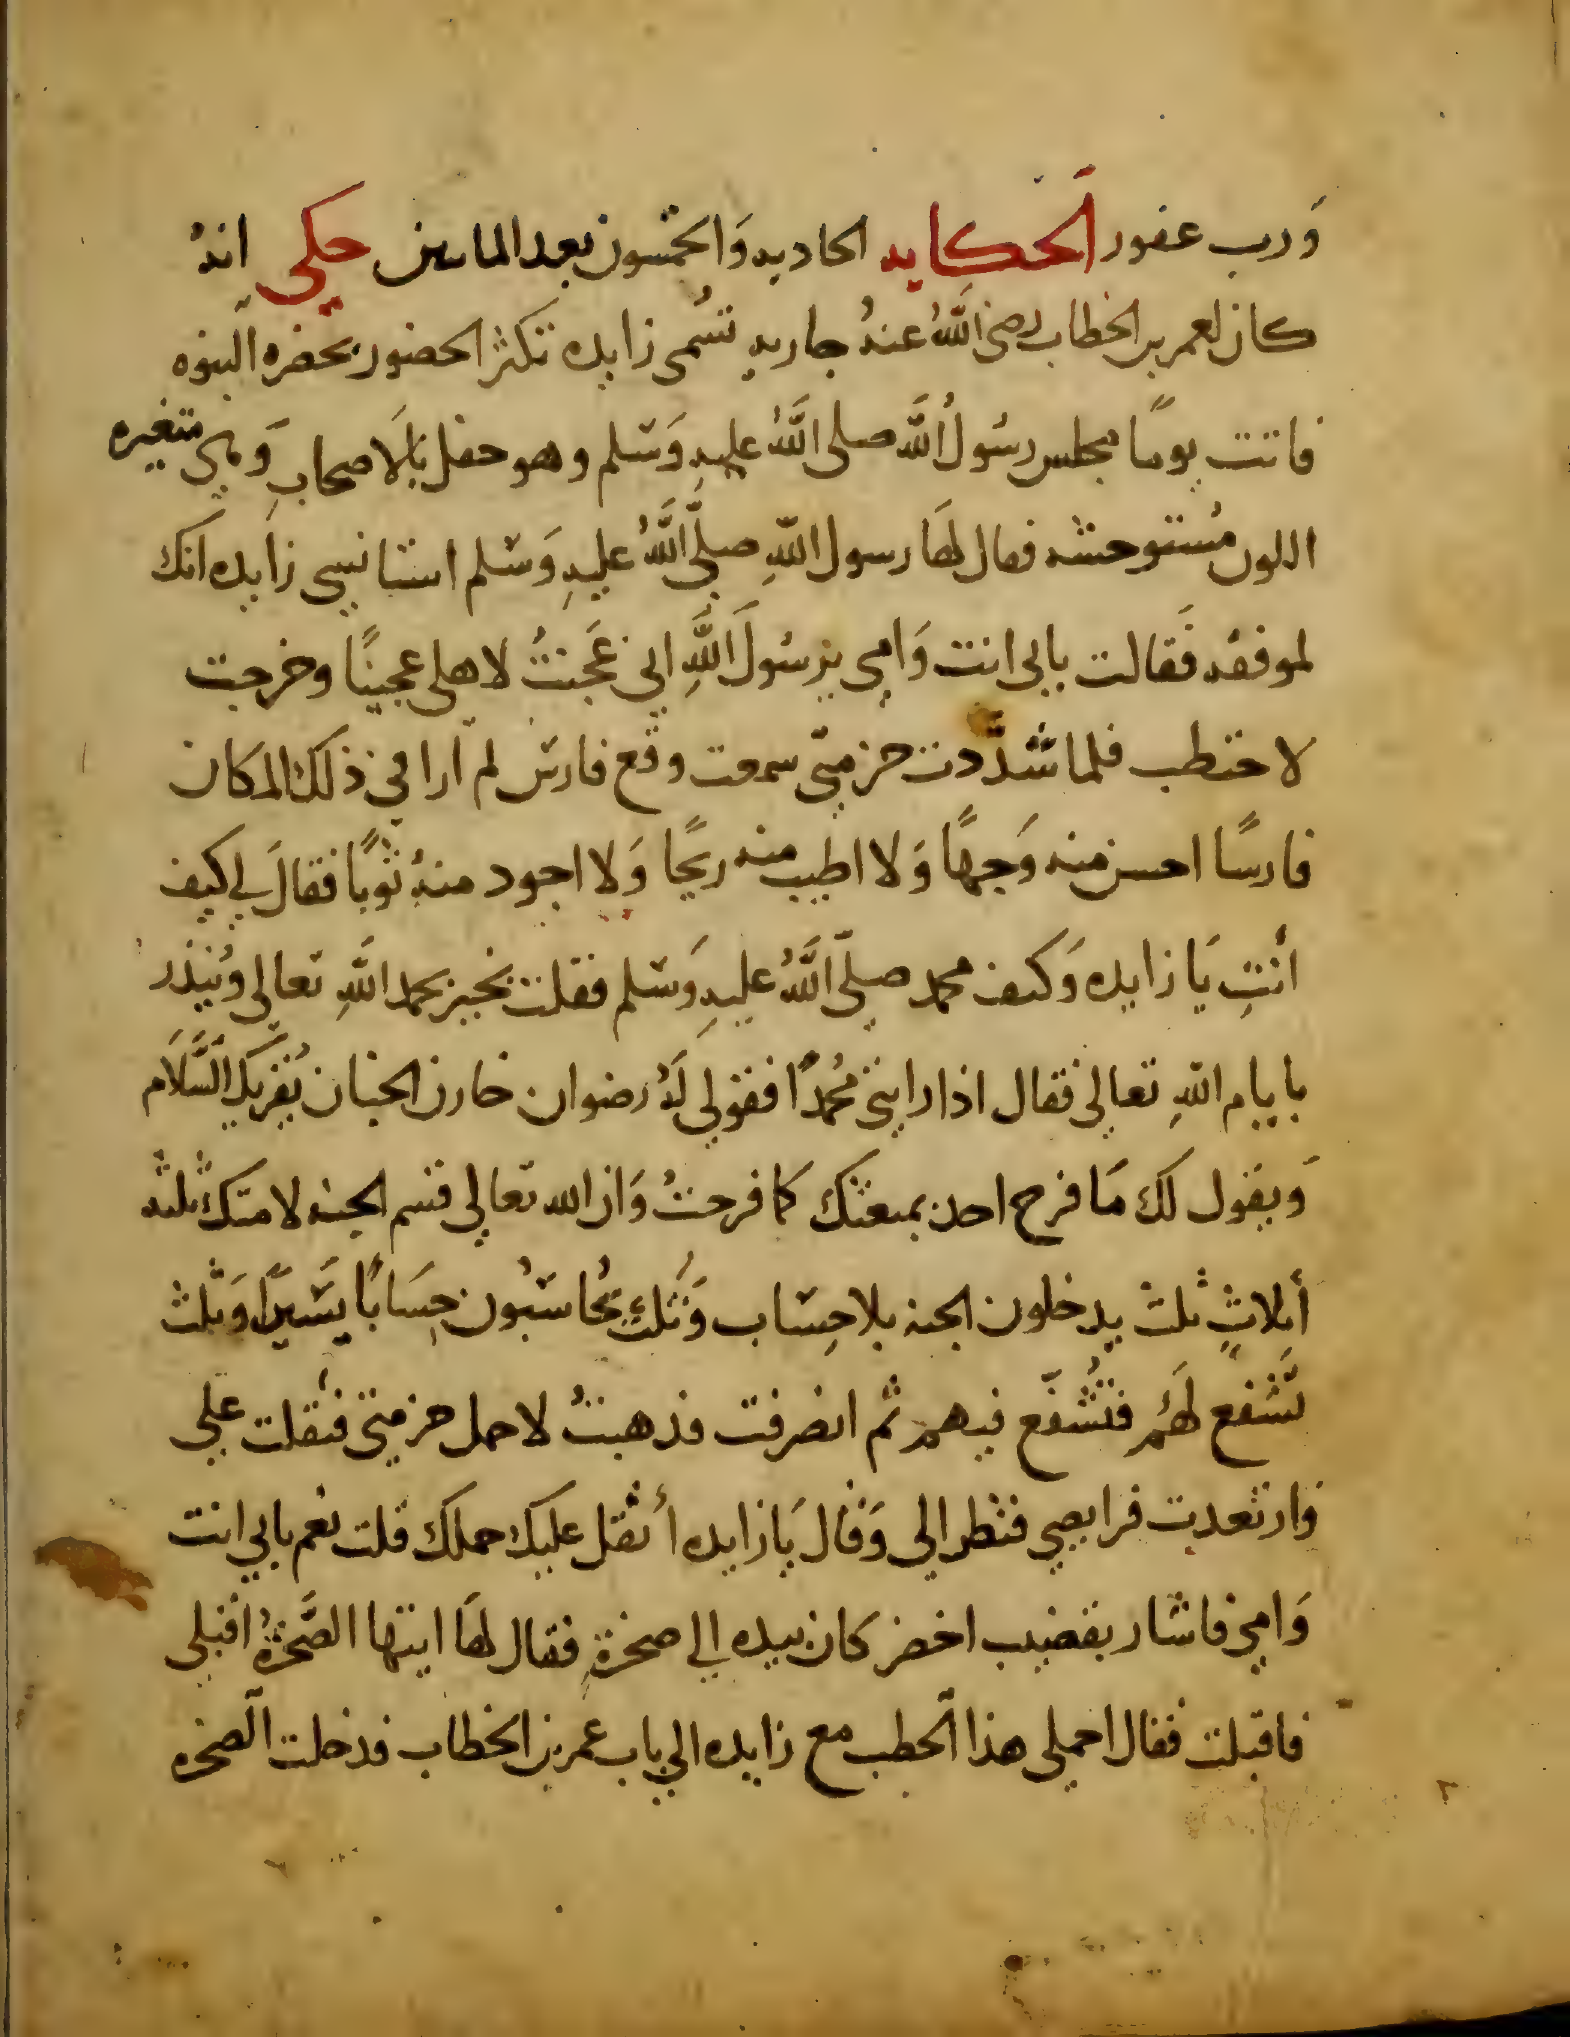 وَرب غفور الحكايه الحاديه وَالخمسون بعد الماىىىن حكي انهُ
كان لعمر بن الخطاب رضي اللهُ عنهُ جاريه تسُمى زايده تكثر الحضور بحضره النبوه
فاتت يومًا مجلس رسُولُ اللَّه صلى اللَّهُ عليهِ وَسَلم وهو حفل بالاَصحابِ وَهى متغيره
اللون مُستوحشه فقال لهَا رسول اللّهِ صلَّى اللَّهُ عليهِ وَسَلم استانسى زايده انك
لموفقه فَقالت بابى انت وَامي يرسُولَ اللَّهِ اني عَجنتُ لاهلى عجينًا وخرجت
لاحتطب فلما شدَّدت حزمتى سمعت وقع فارس لم ارا في ذلك المكان
فارسًا احسن منه وَجهًا وَلا اطيب منه ريحًا وَلا اجود منهُ ثوبًا فقالَ لي كيف
أنتِ يَا زايده وَكيف محمد صلّى اللَّهُ عليهِ وَسَلم فقلت بخير بحمد اللَّهِ تعالى وُينذر
بايام اللهِ تعالي فقال اذا رايتي مُحمدًا فقولي لهُ رضوان خازن الجنان يُقريك السَّلَام
وَيقول لك مَا فرح احد بمبعثك كما فرحتُ وَان الله تعالي قسم الجنه لامتك ثُلثه
أثلاثٍ ثلث يدخلون الجنه بلا حِسَاب وَثُلث يُحاسَبُون حِسَابًا يَسَيرًا وَثلث
تَشفع لهَمُ فتُشفّع فيهم ثم انصرفت فذهبتُ لاحمل حزمتي فثقلت علي
وارتعدت فرايصي فنظر الي وَقال يَا زايده أثقل عليك حملك قلت نعم بابي انت
وَامي فاشار بقضيب اخضر كان بيده الي صخرةٍ فقال لهَا ايتها الصَّخرةُ اقبلى
فاقبلت فقال احملى هذا الحطب مع زايده الي باب عمر بن الخطاب فدخلت الصخره